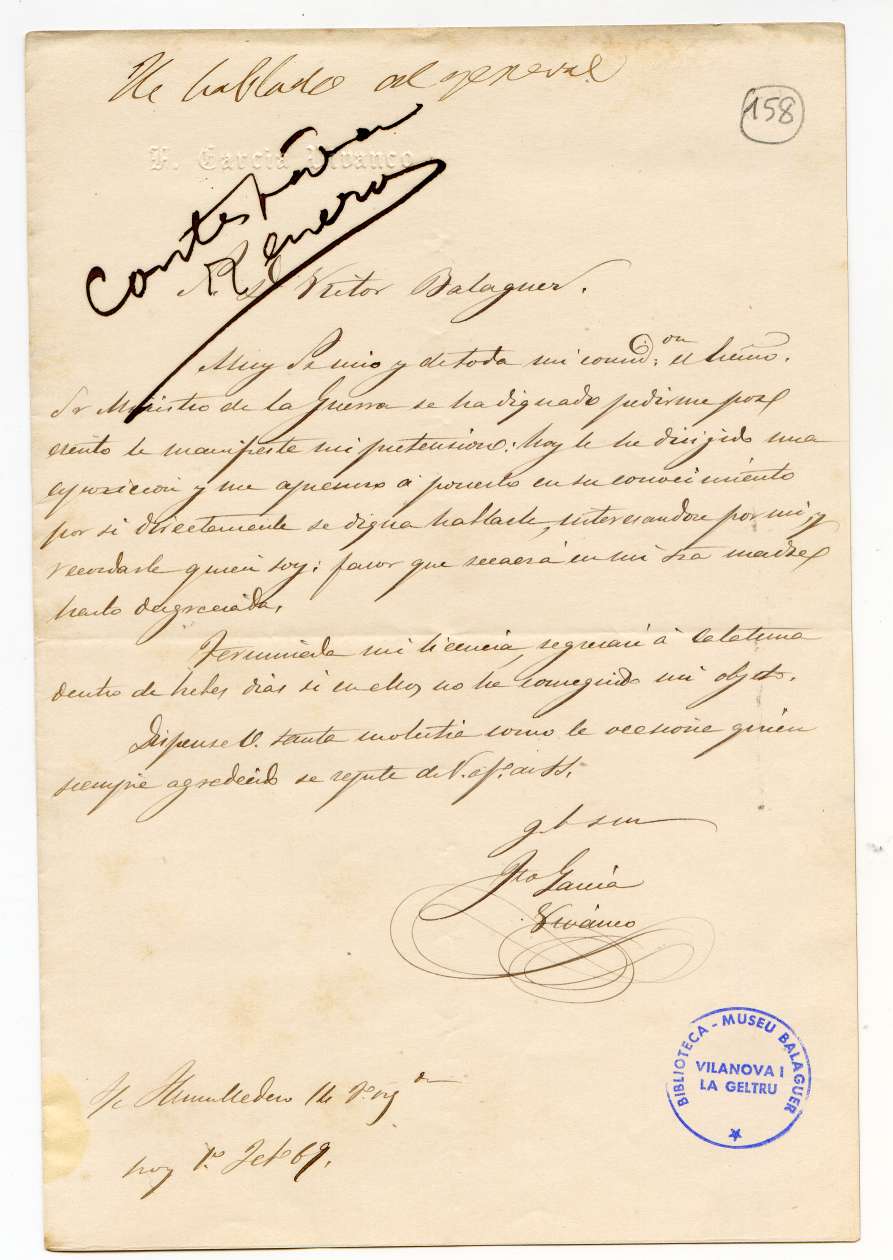 He hablado al general
158
F. García Vivanco
Contestada
Renera
S. D. Victor Balaguer.
Muy Sr mio y de toda mi consid.on: el Excmo.
Sr Ministro de la Guerra se ha dignado pedirme por
escrito le manifieste mi pretension: hoy le he dirigido una
exposicion y me apresuro á ponerlo en su conocimiento
por si directamente se digna hablarle, interesandose por mi, y
recordarle quien soy: favor que recaerá en mi Sra madre
harto desgraciada.
Terminada mi licencia, regresaré á Cataluña
dentro de dias si en ellos no he conseguido mi objeto.
Dispense V. tanta molestia como le ocasione quien
siempre agradecido se repite de V. af.º at. SS.
q b s m
Fco García
Vivanco
S/c Humilladero 14
hoy 1º Feb 69.
BIBLIOTECA - MUSEU BALAGUER
VILANOVA I
LA GELTRU